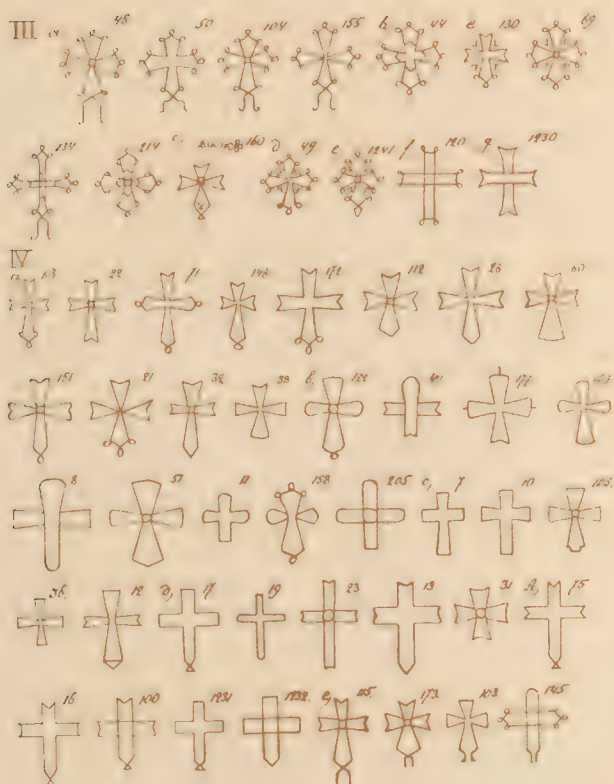 III 48 50 104 155 h 44 e 130 69
134 214 c 160 d 49 e 1241 f 120 g 1230
IV
a 63 22 71 148 172 112 26
151 21 32 38 b, 122 41 177
8 51 11 158 205 c, 7 10 105.
36 12 d, 17 19 23 13 31 A, 75
16 100 1231 1232. e, 115. 173. 103 145